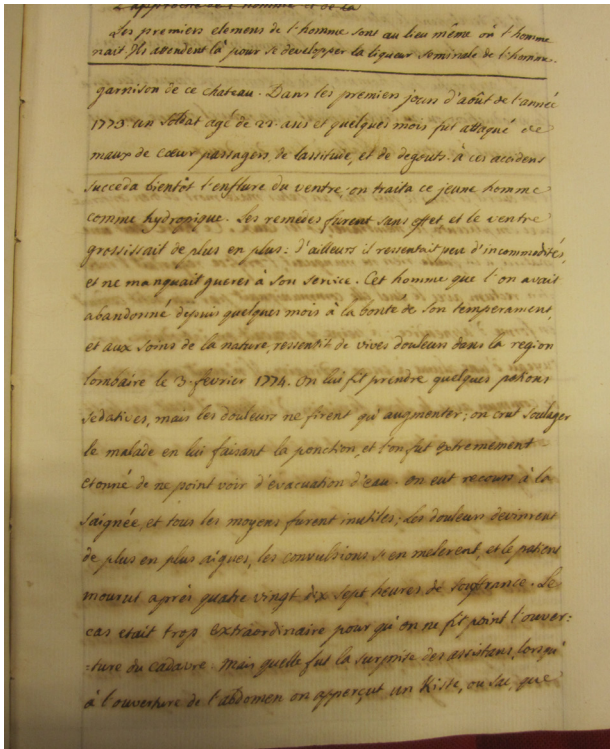 L'approche de l'homme et de la
Les premiers elemens de l'homme sont au lieu même où l'homme
nait. Ils attendent là pour se developper la liqueur seminale de l'homme.
garnison de ce chateau. Dans les premiers jours d'août de l'année
1773 un soldat agé de 22. ans et quelques mois fut attaqué de
maux de cœur passagers, de lassitude, et de degouts. à ces accidens
succeda bientôt l'enflure du ventre, on traita ce jeune homme
comme hydropique. Les remedes furent sans effet et le ventre
grossissait de plus en plus: d'ailleurs il ressentait peu d'incommodités,
et ne manquait gueres à son service. Cet homme que l'on avait
abandonné depuis quelques mois à la bonté de son temperament,
et aux soins de la nature, ressentit de vives douleurs dans la region
lombaire le 3. fevrier 1774. on lui fit prendre quelques potions
sedatives, mais les douleurs ne firent qu'augmenter; on crut soulager
le malade en lui faisant la ponction, et l'on fut extremement
etonné de ne point voir d'evacuation d'eau. on eut recours à la
saignée, et tous les moyens furent inutiles; les douleurs devinrent
de plus en plus aigues, les convulsions s'en melerent, et le patient
mourut après quatre vingt dix sept heures de souffrance. Le
cas etait trop extraordinaire pour qu'on ne fit point l'ouver:
:ture du cadavre. Mais quelle fut la surprise des assistans, lorsqu'
à l'ouverture de l'abdomen on apperçut un Kiste, ou sac, que